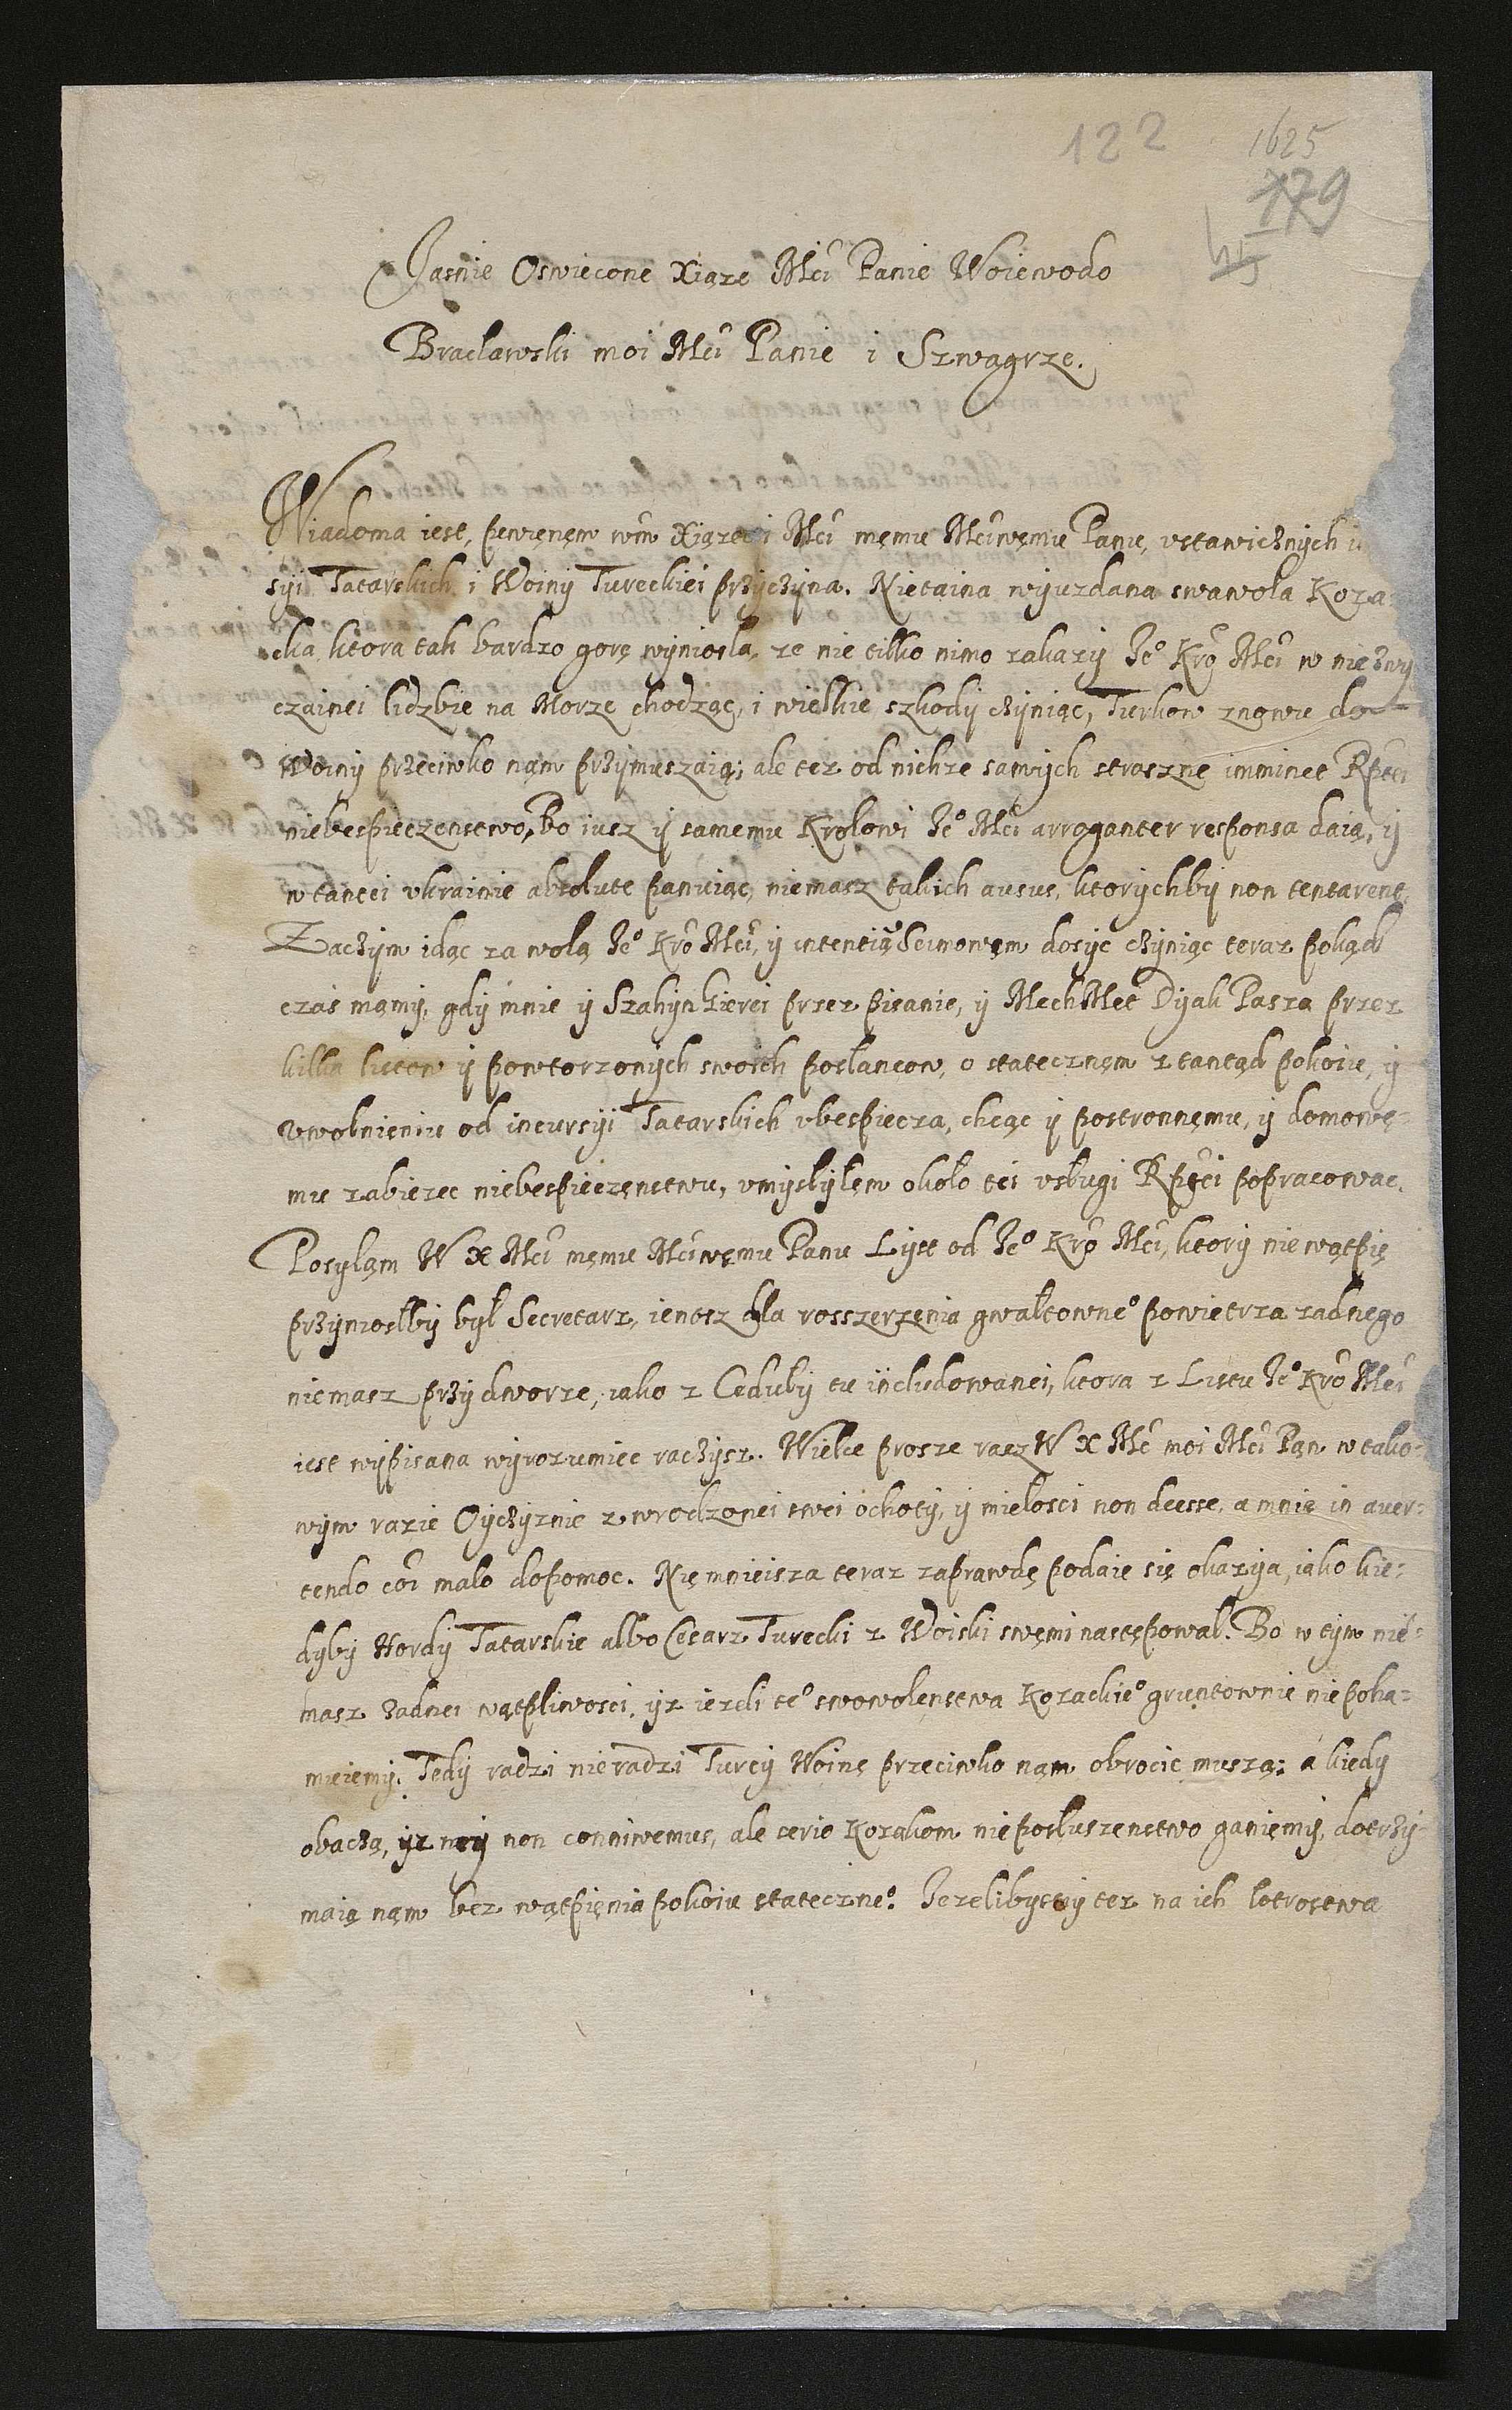 122 1625
179
Jasnie Oswiecone Xiąze Mći Panie Woiewodo
Bracławski moi Mći Panie i Szwagrze.
Wiadoma iest, pewięnęm wm̃ Xiązeci Mći męmu Mćiwęmu Panu, ustawicznych
syi Tatarskich i Woiny Tureckiei przyczyna. Nietaina wyuzdana swawola Koza-
cka ktora tak bardzo gorę wyniosła, ze nie tilko nimo zakazy Je° Kro Mći w niezwy
czainei lidzbie na Morze chodząc, i wielkie szkody czyniąc, Turkow znowu do
Woiny przeciwko nąm przymuszaią; ale tez od nichze samych straszne imminet Rptei
niebespieczenstwo, Bo iusz y samemu Krolowi Je° Mći arroganter responsa daią, y
w tantei ukrainie absolute panuiąc, niemasz takich ausus, ktorychby non tentarent,
Zaczym idąc za wolą Je° Kro Mći, y intentią Seimowęm dosyc czyniąc teraz pokąd
czas mąmy, gdy mnie y Szahyn Kierei przez pisanie, y MechMet Dyak Pasza przez
kilka listow y powtorzonych swoich posłancow, o statecznęm z tantąd pokoiu, y
uwolnięniu od incursyi Tatarskich ubespiecza, chcąc y postronnęmu, y domowę-
mu zabiezec niebespieczęnstwu, umysłyłęm około tei usługi Rptći popracowac.
Posyłąm W X Mći męmu Mćiwęmu Panu Lyst od Je° Kro Mći, ktory nie wątpię
przyniosłby był Secretarz, ienosz dla rosszerzęnia gwałtowne° powietrza zadnego
niemasz przy dworze, iako z Ceduły tu includowanei, ktora z Listu Je° Kro Mći
iest wypisana wyrozumiec raczysz. Wielce prosze racz W X Mć moi Mći Pan w tako-
wym razie Oyczyznie z wrodzonei swei ochoty, y miełosci non deesse, a mnie in aver-
tendo malo dopomoc. Nię mnieisza teraz zaprawdę podaie się okazyja, iako kie-
dyby Hordy Tatarskie albo Cesarz Turecki z Woiski swęmi nastęþował. Bo w tym nie-
masz zadnei wątpliwosci, yz iezeli te° swowolenstwa Kozackie° gruntownie niepoha-
muiemy. Tedy radzi nieradzi Turcy Woinę przeciwko nąm obrocic muszą; á kiedy
obaczą, yz my non connivemus, ale serio Kozakom nieposłuszenstwo ganięmy, dotrzy-
maią nąm bez wątpięnia pokoiu stateczne°. Jezelibysmy tez na ich łotrostwa